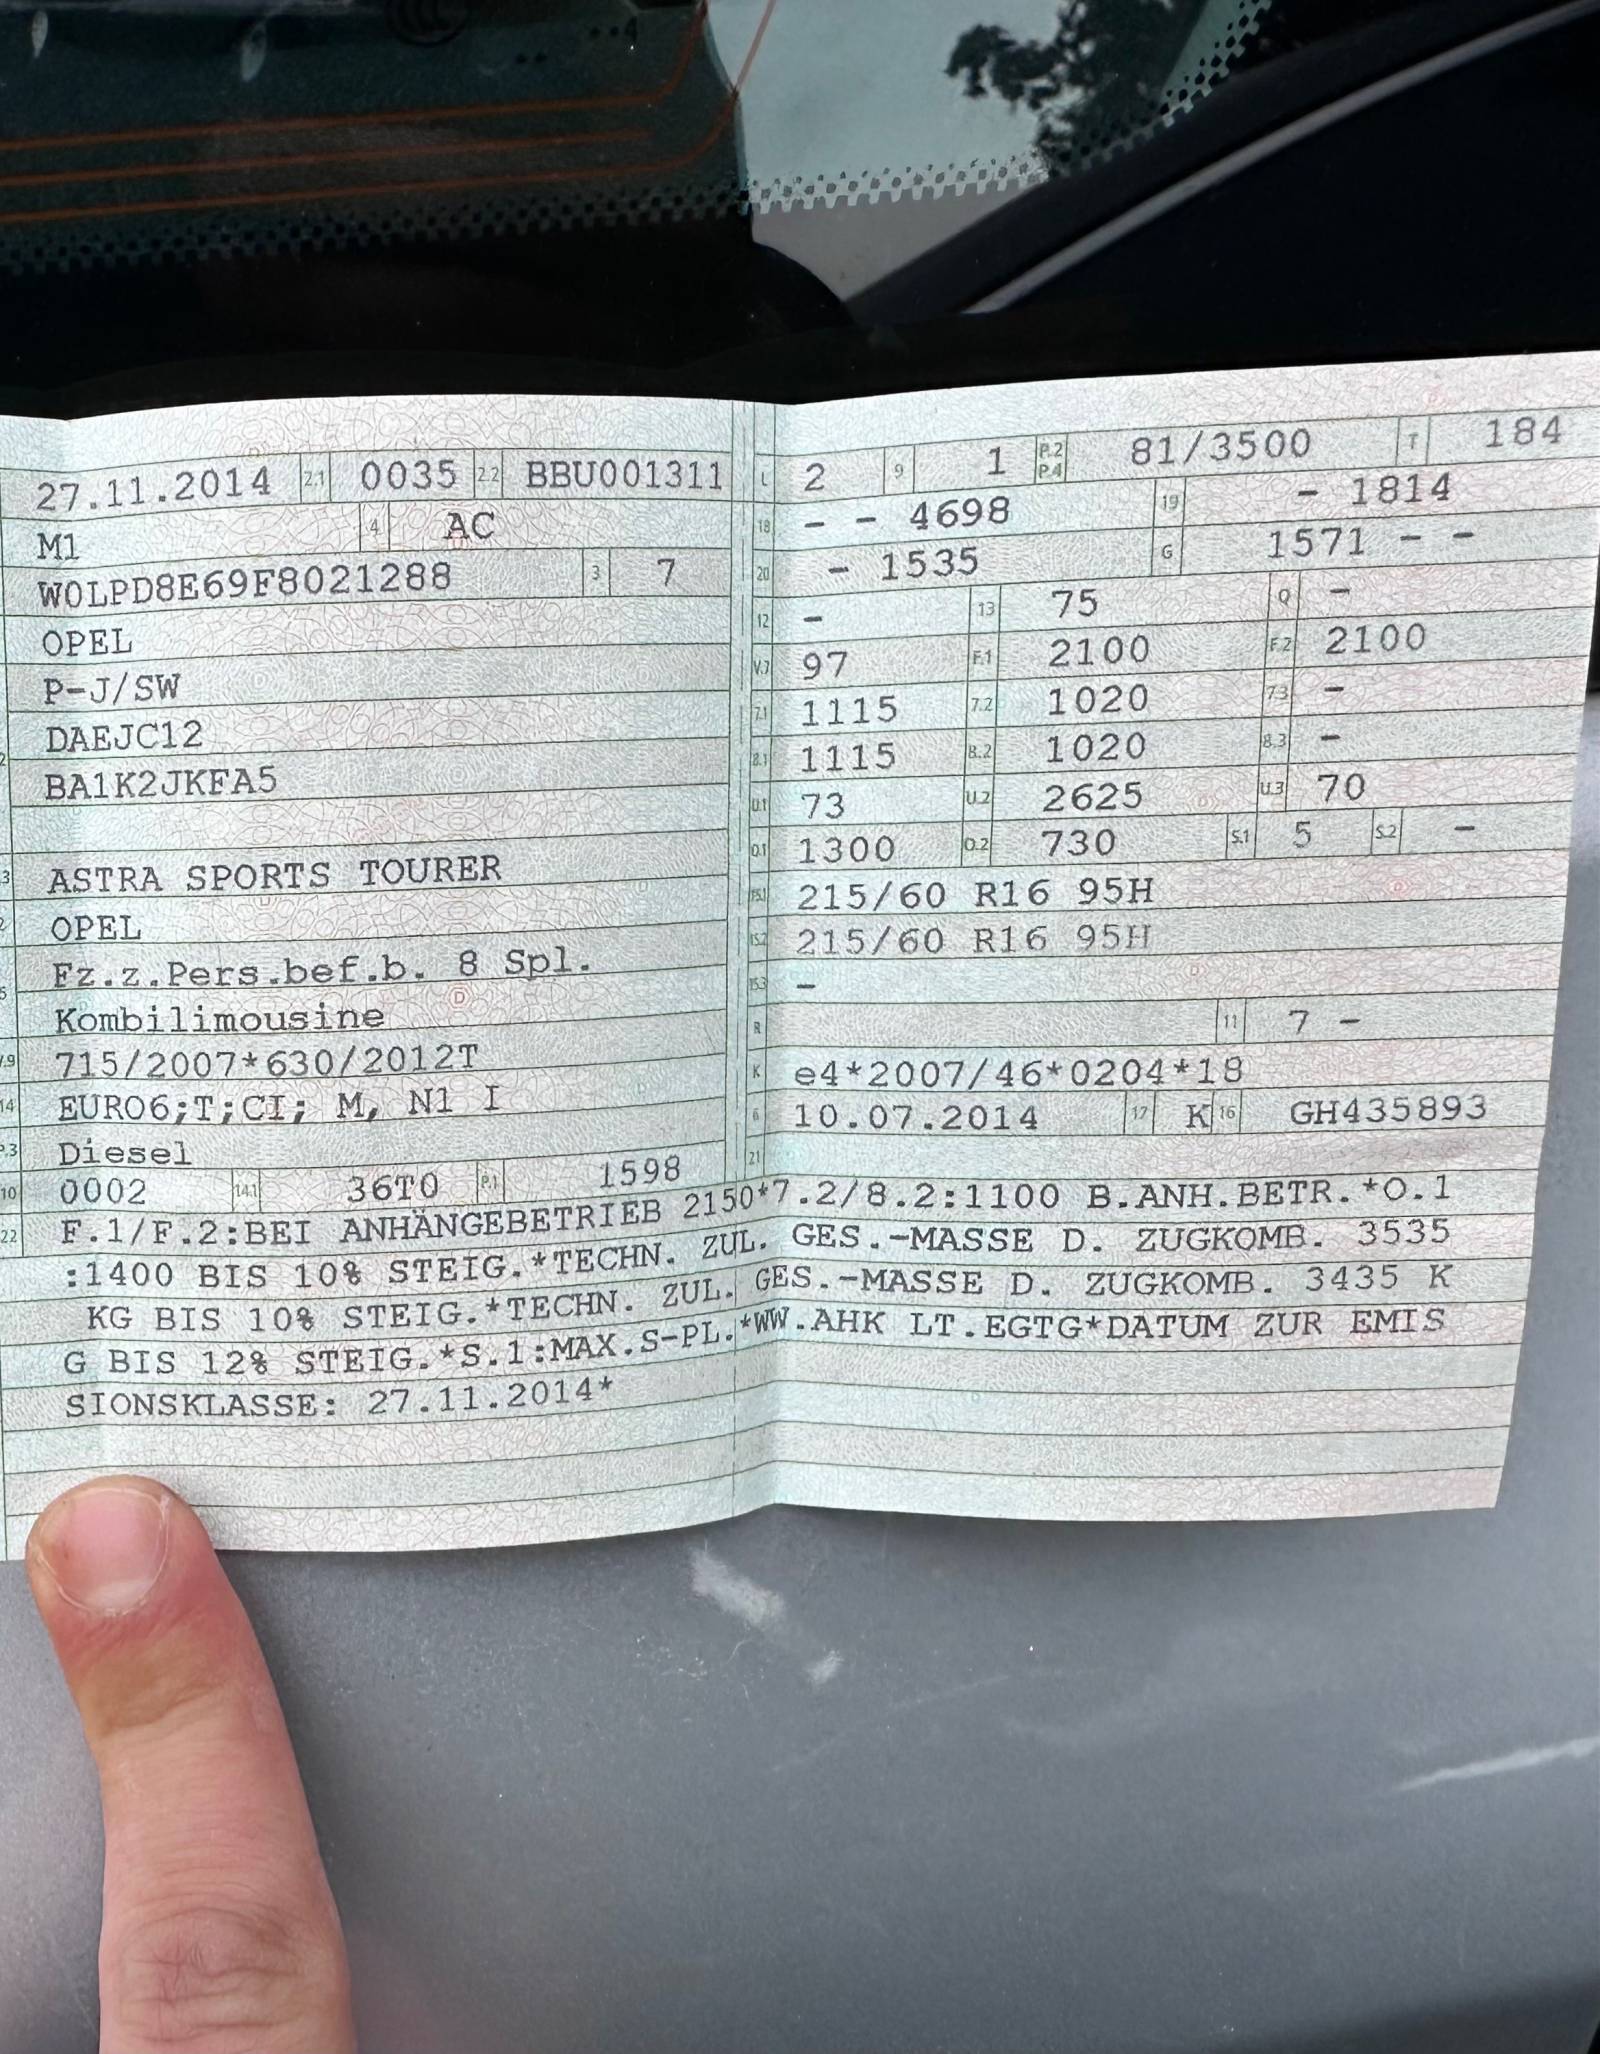 27.11.2014 2.1 0035 2.2 BBU001311
M1 4 AC
W0LPD8E69F8021288 3 7
OPEL
P-J/SW
DAEJC12
BA1K2JKFA5
3 ASTRA SPORTS TOURER
OPEL
Fz.z.Pers.bef.b. 8 Spl.
Kombilimousine
715/2007*630/2012T
14 EURO6;T;CI; M, N1 I
Diesel
10 0002 14.1 36T0 P.1 1598
L 2 9 1 P.2 P.4 81/3500 T 184
18 - - 4698 19 - 1814
20 - 1535 G 1571 - -
12 - 13 75 Q -
V.7 97 F.1 2100 F.2 2100
7.1 1115 7.2 1020 7.3 -
8.1 1115 8.2 1020 8.3 -
U.1 73 U.2 2625 U.3 70
O.1 1300 O.2 730 S.1 5 S.2 -
15.1 215/60 R16 95H
15.2 215/60 R16 95H
15.3 -
R 11 7 -
K e4*2007/46*0204*18
6 10.07.2014 17 K 16 GH435893
21
22 F.1/F.2:BEI ANHÄNGEBETRIEB 2150*7.2/8.2:1100 B.ANH.BETR.*O.1
:1400 BIS 10% STEIG.*TECHN. ZUL. GES.-MASSE D. ZUGKOMB. 3535
KG BIS 10% STEIG.*TECHN. ZUL. GES.-MASSE D. ZUGKOMB. 3435 K
G BIS 12% STEIG.*S.1:MAX.S-PL.*WW.AHK LT.EGTG*DATUM ZUR EMIS
SIONSKLASSE: 27.11.2014*